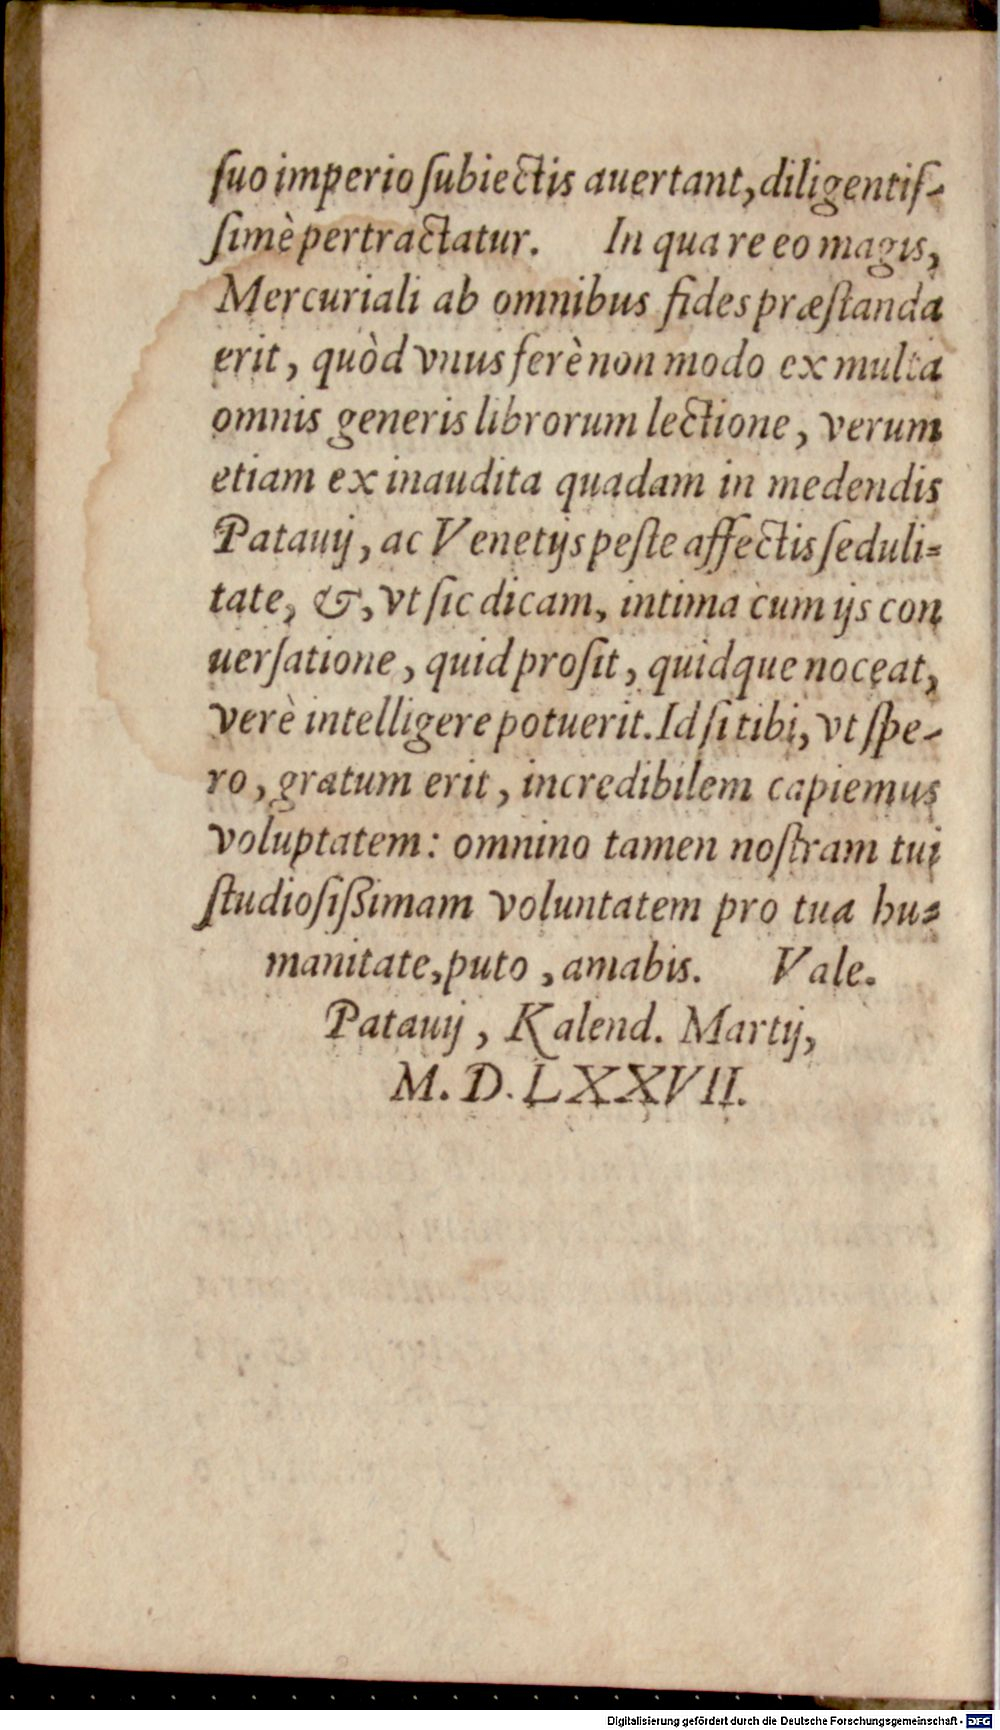 ſuo imperio ſubiectis auertant, diligentiſ-
ſimè pertractatur. In qua re eo magis,
Mercuriali ab omnibus fides præſtanda
erit, quòd vnus ferè non modo ex multa
omnis generis librorum lectione, verum
etiam ex inaudita quadam in medendis
Patauij, ac Venetijs peſte affectis ſeduli-
tate, &, vt ſic dicam, intima cum ijs con
uerſatione, quid proſit, quidque noceat,
verè intelligere potuerit. Id ſi tibi, vt ſpe-
ro, gratum erit, incredibilem capiemus
voluptatem: omnino tamen noſtram tui
ſtudioſiſſimam voluntatem pro tua hu-
manitate, puto, amabis. Vale.
Patauij, Kalend. Martij,
M. D. LXXVII.
Digitalisierung gefördert durch die Deutsche Forschungsgemeinschaft - DFG